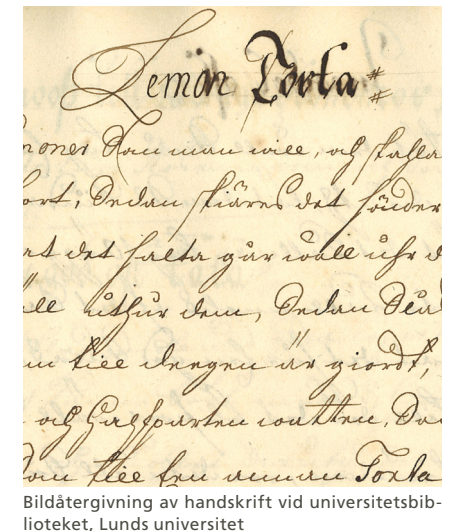 Lemon Torta
moner Kan man will, och skahla
ort, Sedan skiäres det sönder
at det salta går wäll uhr d
äll uthur dem, Sedan
m till deegen är giordt,
och Halfparten watten,
som till en annan Torta
Bildåtergivning av handskrift vid universitetsbib-
lioteket, Lunds universitet